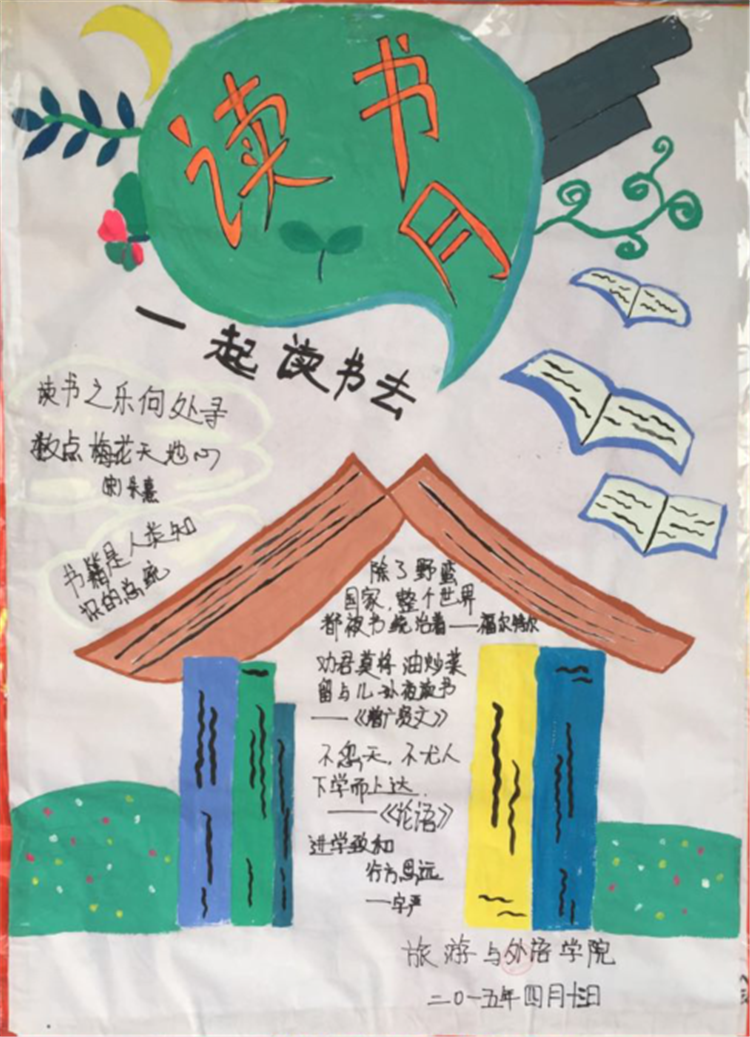 读书月
一起读书去
读书之乐何处寻
数点梅花天地心
书籍是人类知
识的总统
除了野蛮
国家,整个世界
都被书统治着——福尔特尔
劝君莫将油炒菜
留与儿孙夜读书
——《增广贤文》
不怨天,不尤人
下学而上达.
——《论语》
进学致和
行方思远
——字严
旅游与外语学院
二〇一五年四月十三日